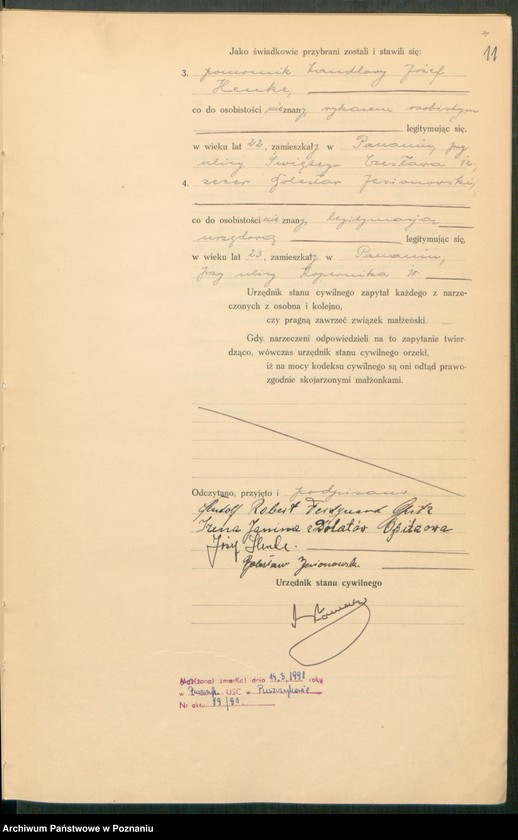 11
Jako świadkowie przybrani zostali i stawili się:
3. pomocnik handlowy Józef
Henke,
co do osobistości nie znany, wykazem osobistym
legitymując się,
w wieku lat 22, zamieszkały w Poznaniu, przy
ulicy Świętego Czesława 12,
4. Bolesław Jezionowski,
co do osobistości nie znany, legitymacją
urzędową legitymując się,
w wieku lat 23, zamieszkały w Poznaniu,
przy ulicy Kopernika
Urzędnik stanu cywilnego zapytał każdego z narze-
czonych z osobna i kolejno,
czy pragną zawrzeć związek małżeński.
Gdy narzeczeni odpowiedzieli na to zapytanie twier-
dząco, wówczas urzędnik stanu cywilnego orzekł,
iż na mocy kodeksu cywilnego są oni odtąd prawo-
zgodnie skojarzonymi małżonkami.
Odczytano, przyjęto i podpisano
Rudolf Robert Ferdynand Opitz
Irena Janina z Dolatów Opitzowa
Józef Henke.
Bolesław Jezionowski
Urzędnik stanu cywilnego
zmarł(a) dnia 14.3.1991 roku
w USC w Puszczykowie
Nr aktu 19/91
Archiwum Państwowe w Poznaniu